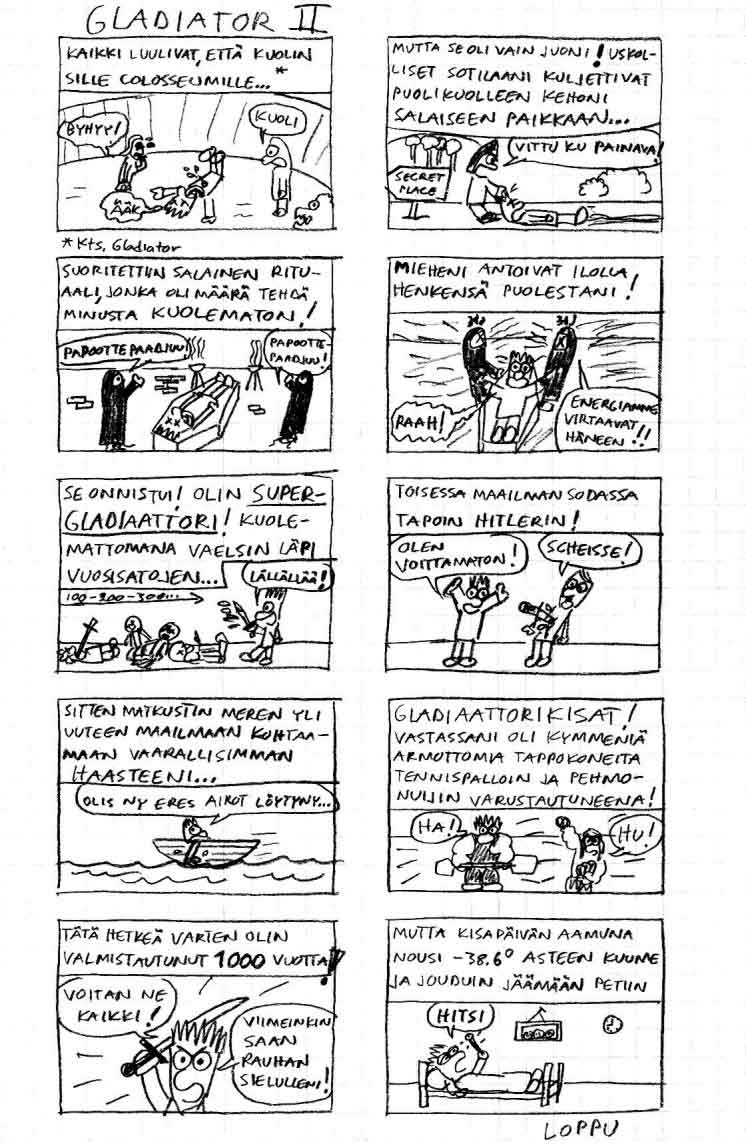 GLADIATOR II
KAIKKI LUULIVAT, ETTÄ KUOLIN
SILLE COLOSSEUMILLE...*
BYHYY!
KUOLI
ÄÄK
* Kts, Gladiator
MUTTA SE OLI VAIN JUONI! USKOL-
LISET SOTILAANI KULJETTIVAT
PUOLIKUOLLEEN KEHONI
SALAISEEN PAIKKAAN...
VITTU KU PAINAVA!
SECRET
PLACE
SUORITETTIIN SALAINEN RITU-
AALI, JONKA OLI MÄÄRÄ TEHDÄ
MINUSTA KUOLEMATON!
PAPOOTTEPAADJUU!
PAPOOTTE-
PAADJUU!
MIEHENI ANTOIVAT ILOLLA
HENKENSÄ PUOLESTANI!
RAAH!
ENERGIAMME
VIRTAAVAT
HÄNEEN!!
SE ONNISTUI! OLIN SUPER-
GLADIAATTORI! KUOLE-
MATTOMANA VAELSIN LÄPI
VUOSISATOJEN...
100-200-300...
LÄLLÄLLÄÄ!
TOISESSA MAAILMAN SODASSA
TAPOIN HITLERIN!
OLEN
VOITTAMATON!
SCHEISSE!
SITTEN MATKUSTIN MEREN YLI
UUTEEN MAAILMAAN KOHTAA-
MAAN VAARALLISIMMAN
HAASTEENI...
OLIS NY ERES AIROT LÖYTYNY...
GLADIAATTORIKISAT!
VASTASSANI OLI KYMMENIÄ
ARMOTTOMIA TAPPOKONEITA
TENNISPALLOIN JA PEHMO-
NUIJIN VARUSTAUTUNEENA!
HA!
HU!
TÄTÄ HETKEÄ VARTEN OLIN
VALMISTAUTUNUT 1000 VUOTTA!
VOITAN NE
KAIKKI!
VIIMEINKIN
SAAN
RAUHAN
SIELULLENI!
MUTTA KISAPÄIVÄN AAMUNA
NOUSI -38.6° ASTEEN KUUME
JA JOUDUIN JÄÄMÄÄN PETIIN
HITSI
LOPPU